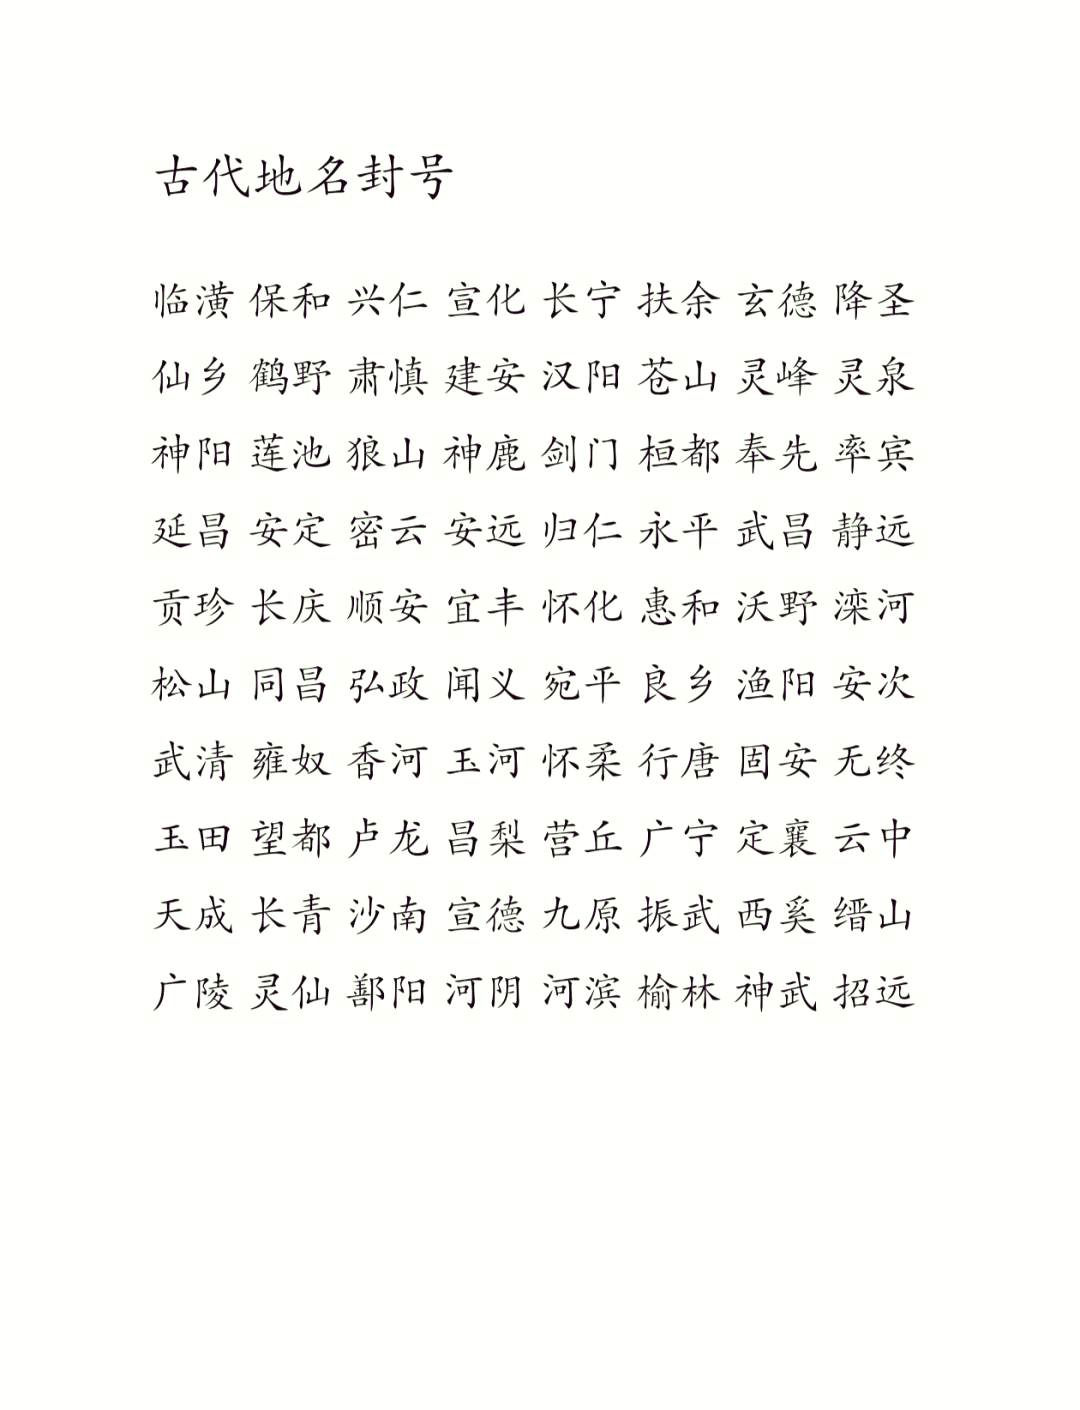 古代地名封号
临潢 保和 兴仁 宣化 长宁 扶余 玄德 降圣
仙乡 鹤野 肃慎 建安 汉阳 苍山 灵峰 灵泉
神阳 莲池 狼山 神鹿 剑门 桓都 奉先 率宾
延昌 安定 密云 安远 归仁 永平 武昌 静远
贡珍 长庆 顺安 宜丰 怀化 惠和 沃野 滦河
松山 同昌 弘政 闻义 宛平 良乡 渔阳 安次
武清 雍奴 香河 玉河 怀柔 行唐 固安 无终
玉田 望都 卢龙 昌梨 营丘 广宁 定襄 云中
天成 长青 沙南 宣德 九原 振武 西奚 缙山
广陵 灵仙 鄯阳 河阴 河滨 榆林 神武 招远